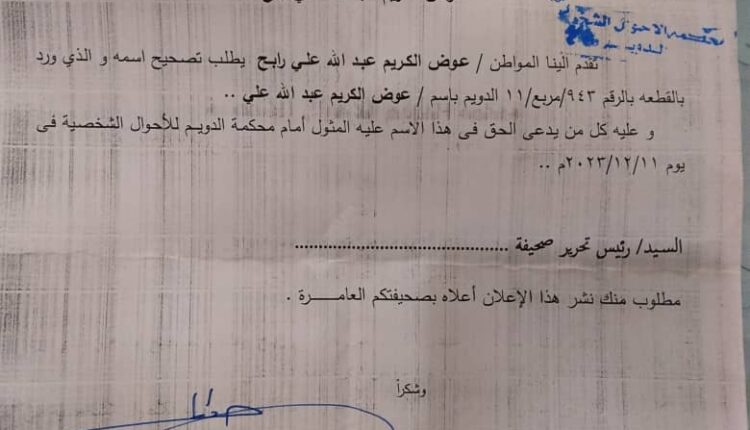 محكمة الاحوال الشخصية
الدويم
تقدم الينا المواطن / عوض الكريم عبد الله علي رابح يطلب تصحيح اسمه و الذي ورد
بالقطعه بالرقم ٩٤٣/مربع/١١ الدويم باسم / عوض الكريم عبد الله علي ..
و عليه كل من يدعى الحق فى هذا الاسم عليه المثول أمام محكمة الدويم للأحوال الشخصية فى
يوم ٢٠٢٣/١٢/١١م ..
السيد/ رئيس تحرير صحيفة ............................................
مطلوب منك نشر هذا الإعلان أعلاه بصحيفتكم العامـــــرة .
وشكراً